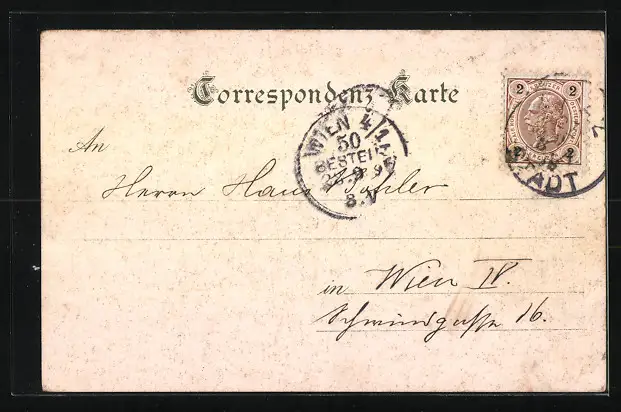 Correspondenz Karte
2 2
WIEN 4/1
50
BESTELLT
8.V
An
Herrn Hans
STADT
2 2
in Wien IV.
Schwindgasse 16.